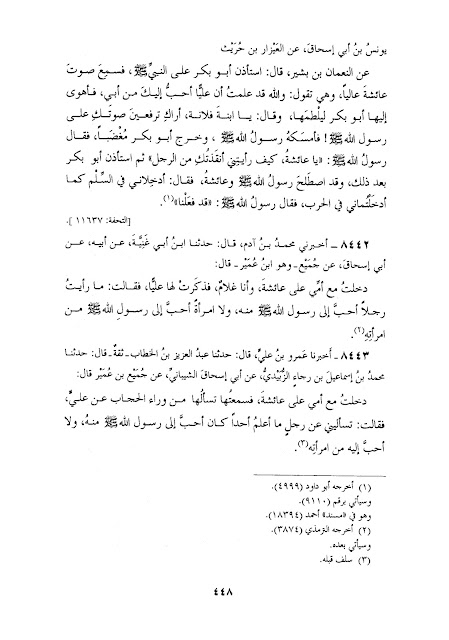 يونسُ بنُ أبي إسحاقَ، عن العَيْزار بن حُرَيْث
عن النعمان بن بشير، قال: استأذن أبو بكر على النبيِّ ﷺ، فسمِعَ صوتَ
عائشةَ عالياً، وهي تقول: والله قد علمتُ أن عليًّا أحبُّ إليكَ من أبي، فأهوى
إليها أبو بكر ليلْطِمَها، وقال: يا ابنةَ فلانة، أراكِ ترفعينَ صوتَكِ على
رسول الله ﷺ! فأمسَكهُ رسولُ الله ﷺ، وخرج أبو بكر مُغْضَباً، فقال
رسولُ الله ﷺ: «يا عائشةُ، كيف رأيتِني أنقَذْتُكِ من الرجل» ثم استأذن أبو بكر
بعد ذلك، وقد اصطَلحَ رسولُ الله ﷺ وعائشةُ، فقال: أدخِلاني في السِّلْم كما
أدخَلْتُماني في الحرب، فقال رسولُ الله ﷺ: «قد فعَلْنا»(١).
[التحفة: ١١٦٣٧ ].
٨٤٤٢ ـ أخبرني محمدُ بنُ آدم، قال: حدثنا ابنُ أبي غَنِيَّةَ، عن أبيه، عن
أبي إسحاقَ، عن جُمَيْع ـ وهو ابنُ عُمَيْر ـ قال:
دخلتُ مع أمِّي على عائشةَ، وأنا غلامٌ، فذكَرتْ لها عليًّا، فقالت: ما رأيتُ
رجلاً أحبَّ إلى رسول الله ﷺ منه، ولا امرأةً أحبَّ إلى رسولِ الله ﷺ من
امرأتِهِ(٢).
٨٤٤٣ ـ أخبرنا عَمرو بنُ عليٍّ، قال: حدثنا عبدُ العزيز بنُ الخطاب ـ ثقةٌ ـ قال: حدثنا
محمدُ بنُ إسماعيل بنِ رجاءٍ الزُّبَيْديُّ، عن أبي إسحاقَ الشيبانيِّ، عن جُمَيْع بن عُمَيْر قال:
دخلتُ مع أمي على عائشةَ، فسمعتُها تسألُها من وراء الحجاب عن عليٍّ،
فقالت: تسأليني عن رجلٍ ما أعلمُ أحداً كان أحبَّ إلى رسول الله ﷺ منهُ، ولا
أحبَّ إليه من امرأتِه(٣).
(١) أخرجه أبو داود (٤٩٩٩).
وسيأتي برقم (٩١١٠).
وهو في «مسند» أحمد (١٨٣٩٤).
(٢) أخرجه الترمذي (٣٨٧٤).
وسيأتي بعده.
(٣) سلف قبله.
٤٤٨